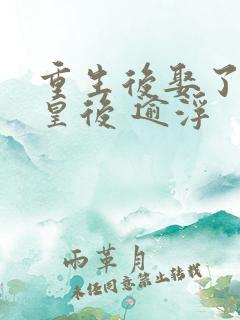 重生後娶了
皇後 逾浮
雨革月
未任同意禁止转载